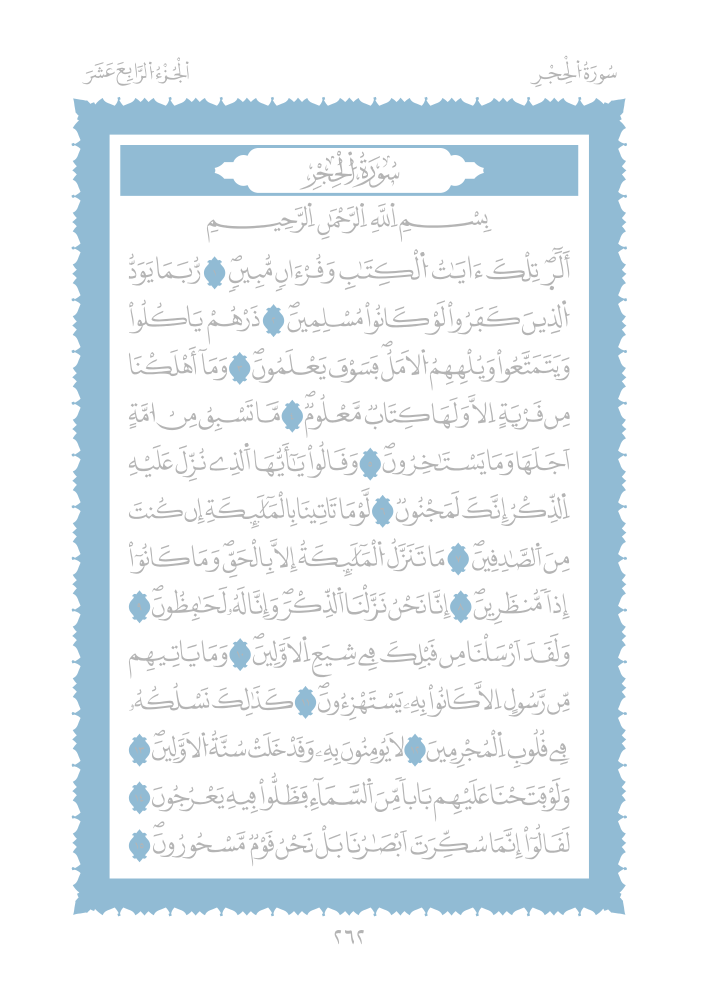 سُورَةُ الْحِجْرِ
الْجُزْءُ الرَّابِعَ عَشَرَ
سُورَةُ الْحِجْرِ
بِسْمِ اِللَّهِ اِلرَّحْمَٰنِ اِلرَّحِيمِ
أَلَٓرۖ تِلْكَ ءَايَٰتُ اُلْكِتَٰبِ وَقُرْءَانٖ مُّبِينٖۖ رُّبَمَا يَوَدُّ
اُلذِينَ كَفَرُواْ لَوْ كَانُواْ مُسْلِمِينَۖ ذَرْهُمْ يَاكُلُواْ
وَيَتَمَتَّعُواْ وَيُلْهِهِمُ اُلَامَلُۖ فَسَوْفَ يَعْلَمُونَۖ وَمَآ أَهْلَكْنَا
مِن قَرْيَةٍ اِلَّا وَلَهَا كِتَابٞ مَّعْلُومٞۖ مَّا تَسْبِقُ مِنُ ا۟مَّةٍ
اَجَلَهَا وَمَا يَسْتَٰخِرُونَۖ وَقَالُواْ يَٰٓأَيُّهَا اَلذِے نُزِّلَ عَلَيْهِ
اِلذِّكْرُ إِنَّكَ لَمَجْنُونٞۖ لَّوْ مَا تَاتِينَا بِالْمَلَٰٓئِكَةِ إِن كُنتَ
مِنَ اَلصَّٰدِقِينَۖ مَا تَنَزَّلُ اُلْمَلَٰٓئِكَةُ إِلَّا بِالْحَقِّۖ وَمَا كَانُوٓاْ
إِذاٗ مُّنظَرِينَۖ إِنَّا نَحْنُ نَزَّلْنَا اَلذِّكْرَۖ وَإِنَّا لَهُۥ لَحَٰفِظُونَۖ
وَلَقَدَ اَرْسَلْنَا مِن قَبْلِكَ فِے شِيَعِ اِلَاوَّلِينَۖ وَمَا يَاتِيهِم
مِّن رَّسُولٍ اِلَّا كَانُواْ بِهِۦ يَسْتَهْزِءُونَۖ كَذَٰلِكَ نَسْلُكُهُۥ
فِے قُلُوبِ اِلْمُجْرِمِينَ لَا يُومِنُونَ بِهِۦ وَقَدْ خَلَتْ سُنَّةُ اُلَاوَّلِينَۖ
وَلَوْ فَتَحْنَا عَلَيْهِم بَاباٗ مِّنَ اَلسَّمَآءِ فَظَلُّواْ فِيهِ يَعْرُجُونَ
لَقَالُوٓاْ إِنَّمَا سُكِّرَتَ اَبْصَٰرُنَا بَلْ نَحْنُ قَوْمٞ مَّسْحُورُونَۖ
٢٦٢